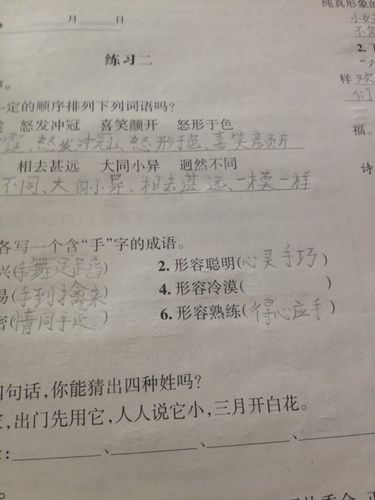 月 日
练习二
一定的顺序排列下列词语吗?
怒发冲冠 喜笑颜开 怒形于色
怒发冲冠、怒形于色、喜笑颜开
相去甚远 大同小异 迥然不同
不同、大同小异、相去甚远、一模一样
各写一个含“手”字的成语。
2.形容聪明(心灵手巧)
(手到擒来) 4.形容冷漠( )
(情同手足) 6.形容熟练(得心应手)
四句话,你能猜出四种姓吗?
,出门先用它,人人说它小,三月开白花。
:____、____、____、____
纯真形象的
2.
样
福。
诗